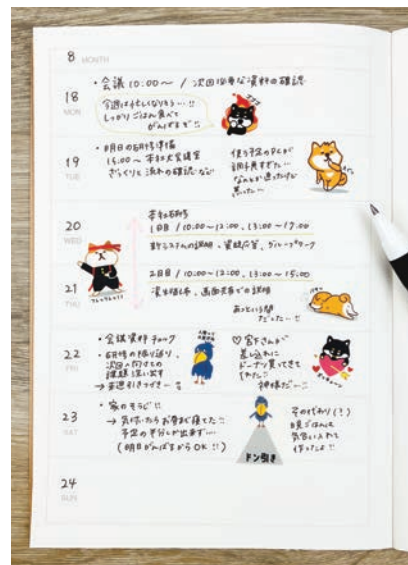 8 MONTH
18
MON
・会議 10:00〜 / 次回必要な資料の確認
今週は忙しくなりそう…!!
しっかりごはん食べて
がんばるぞ!!
19
TUE
・明日の研修準備
15:00〜 本社大会議室
ざっくりと流れの確認など
使う予定のPCが
調子悪すぎた…
なんとか
20
WED
本社研修
1日目 / 10:00〜12:00、13:00〜17:00
新システムの説明、質疑応答、グループワーク
21
THU
2日目 / 10:00〜12:00、13:00〜15:00
の説明
あっという間
だった…!!
22
FRI
・会議資料チェック
・研修の振り返り、
次回へ向けての
課題洗い出す
→来週引きつぎ
♡宮下さんが
差し入れに
ドーナツ買ってきて
くれた
神様だ…
23
SAT
・家のそうじ!!
→気付いたらお昼まで寝てた
予定の半分しか出来ず…
(明日がんばるからOK!!)
ドン引き
その代わり(!)
晩ごはんは
気合い入れて
作ったよ!!
24
SUN